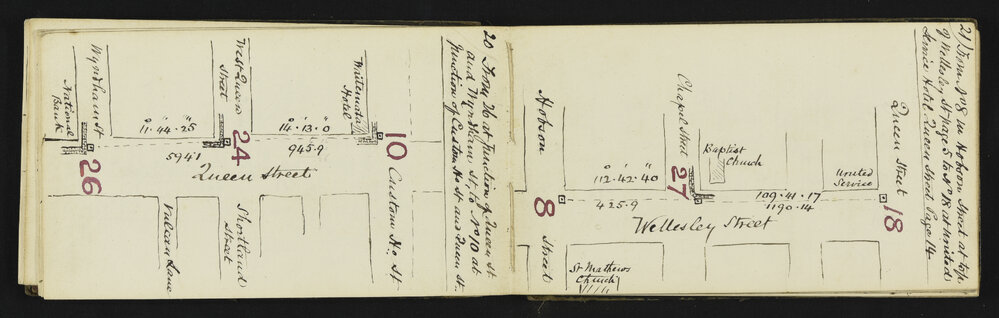 20 From 26 at Junction of Queen St.
and Wyndham St. to No 10 at
Junction of Custom Ho St and Queen St.
Wyndham St
National
Bank
26
11.44.25
594.1
West Queen
Street
24
14.13.0
945.9
Waitemata
Hotel
10
Queen Street
Custom Ho. St
Vulcan Lane
Shortland
Street
21 From No 8 in Hobson Street at top
of Wellesley St page 5 to No 18 at United
Service Hotel Queen Street Page 14
Hobson
Street
8
112.42.40
425.9
Chapel Street
27
Baptist
Church
109.41.17
1190.14
United
Service
Queen Street
18
Wellesley Street
St Mathews
Church